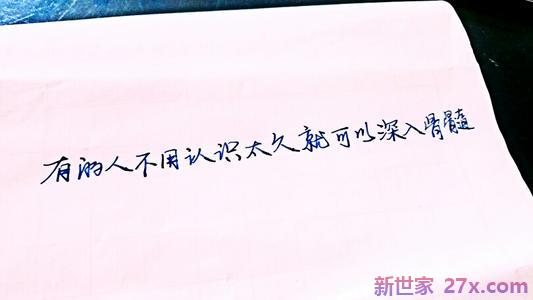 有的人不用认识太久就可以深入骨髓
新世家 27x.com